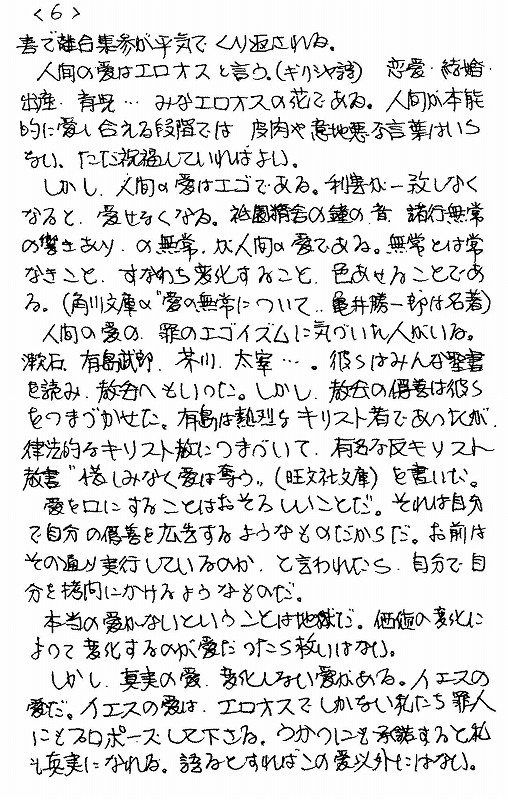 <6>
害で離合集参が平気でくり返される。
人間の愛はエロオスと言う。(ギリシャ語) 恋愛・結婚・
出産・育児… みなエロオスの花である。人間が本能
的に愛し合える段階では 皮肉や意地悪な言葉はいら
ない、ただ祝福していればよい。
しかし、人間の愛はエゴである。利害が一致しなく
なると、愛せなくなる。祇園精舎の鐘の音 諸行無常
の響きあり、の無常、が人間の愛である。無常とは常
なきこと、すなわち変化すること、色あせることであ
る。(角川文庫〝愛の無常について〟亀井勝一郎は名著)
人間の愛の、罪のエゴイズムに気づいた人がいる。
漱石、有島武郎、芥川、太宰…。彼らはみんな聖書
を読み、教会へもいった。しかし、教会の偽善は彼ら
をつまづかせた。有島は熱烈なキリスト者であったが、
律法的なキリスト教につまづいて、有名な反キリスト
教書〝惜しみなく愛は奪う〟(旺文社文庫)を書いた。
愛を口にすることはおそろしいことだ。それは自分
で自分の偽善を広告するようなものだからだ。お前は
その通り実行しているのか、と言われたら、自分で自
分を拷問にかけるようなものだ。
本当の愛がないということは地獄だ。価値の変化に
よって変化するのが愛だったら救いはない。
しかし、真実の愛、変化しない愛がある。イエスの
愛だ。イエスの愛は、エロオスでしかない私たち罪人
にもプロポーズして下さる。うかつにも承諾すると私
も真実になれる。語るとすればこの愛以外にはない。